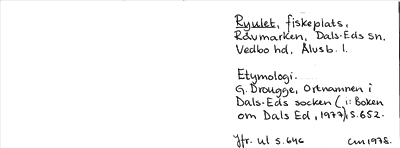 Ryulet, fiskeplats,
Råvmarken, Dals-Eds sn,
Vedbo hd, Älvsb. l.
Etymologi.
G. Drougge, Ortnamnen i
Dals-Eds socken (i: Boken
om Dals Ed, 1977), s. 652.
Jfr. ul s. 646 cm 1978.